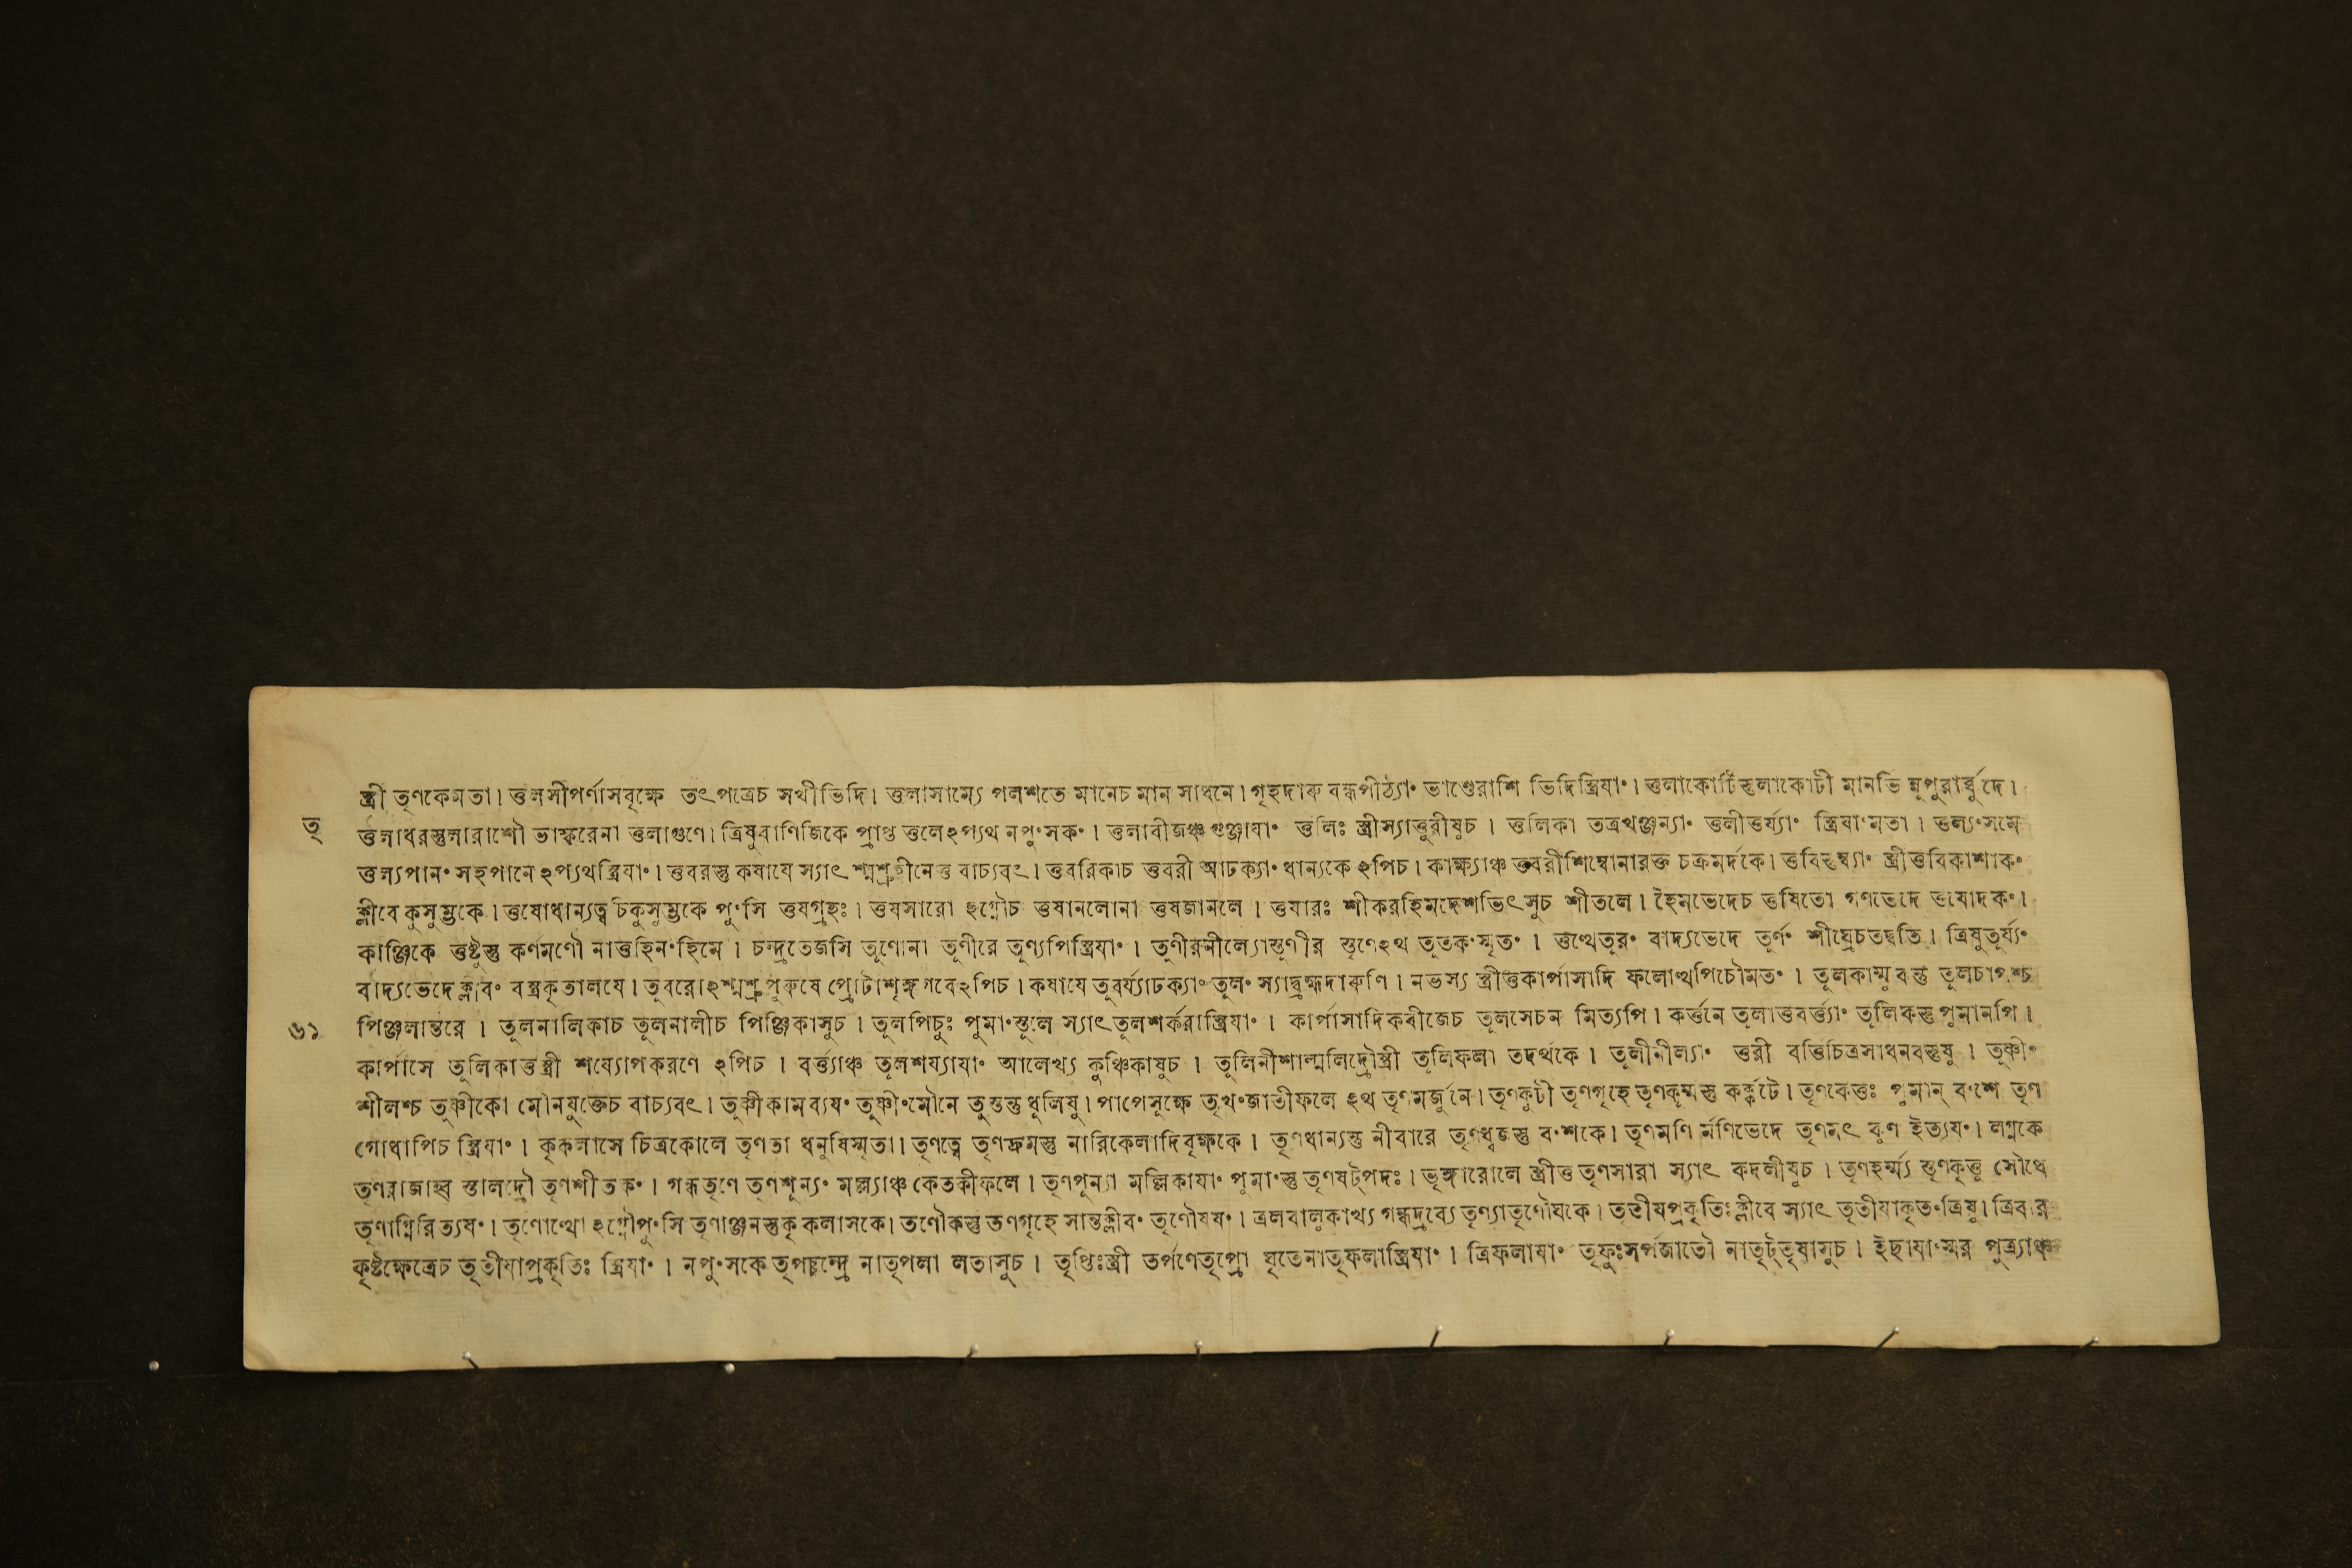 স্ত্রী তৃণকেমতা। ত্তলসীপর্ণাসবৃক্ষে তৎপত্রেচ সখীভিদি। ত্তলাসাম্যে পলশতে মানেচ মান সাধনে। গৃহদারু বন্ধপীঠ্যাং ভাণ্ডেরাশি ভিদিস্ত্রিযাং। ত্তলাকোটিস্তলাকোটী মানভি ন্নূপুরার্ব্বুদে।
তৃ
ত্তলাধরস্তুলারাশৌ ভাস্করেনা ত্তলাগুণে। ত্রিষুবাণিজিকে প্রাপ্ত ত্তলেঽপ্যথ নপুংসকং। ত্তলাবীজঞ্চ গুঞ্জাযাং ত্তলিঃ স্ত্রীস্যাত্তুরীষুচ। ত্তলিকা তত্রখঞ্জন্যাং ত্তলীত্তর্য্যাং স্ত্রিযাংমতা। ত্তল্যংসমে
ত্তল্যপানং সহপানে ঽপ্যথস্ত্রিযাং। ত্তবরস্তু কষাযে স্যাৎ শ্মশ্রুহীনেত্ত বাচ্যবৎ। ত্তবরিকাচ ত্তবরী আঢক্যাং ধান্যকে ঽপিচ। কাক্ষ্যাঞ্চ ত্তবরীশিম্বোনারক্ত চক্রমর্দকে। ত্তবিস্তুম্ব্যাং স্ত্রীত্তবিকাশাকং
ক্লীবে কুসুম্ভকে। ত্তষোধান্যত্বচিকুসুম্ভকে পুংসি ত্তষগ্রহঃ। ত্তষসারো ঽগ্নৌচ ত্তষানলোনা ত্তষজানলে। ত্তষারঃ শীকরহিমদেশভিৎসুচ শীতলে। হৈমভেদেচ ত্তষিতো গণভেদে ত্তষোদকং।
কাঞ্জিকে ত্তষ্টুস্তু কর্ণমণৌ নাত্তহিনংহিমে। চন্দ্রতেজসি তূণোনা তূণীরে তূণ্যপিস্ত্রিযাং। তূণীরনীল্যোস্তূণীর স্তূণেঽথ তূতকংস্মৃতং। ত্তত্থেতূরং বাদ্যভেদে তূর্ণং শীঘ্রেচতদ্বতি। ত্রিষুতূর্য্যং
বাদ্যভেদেক্লীবং বস্ত্রকৃতালযে। তূবরোঽশ্মশ্রুপুরুষে প্রোটাশৃঙ্গগবেঽপিচ। কষাযে তূবর্য্যাঢক্যাং তূলং স্যাদ্ব্রহ্মদারুণি। নভস্য স্ত্রীত্তকার্পাসাদি ফলোত্থপিচৌমতং। তূলকাম্মুবন্তু তূলচাপশ্চ
৬১
পিঞ্জলান্তরে। তূলনালিকাচ তূলনালীচ পিঞ্জিকাসুচ। তূলপিচুঃ পুমাংস্তূলে স্যাৎ তূলশর্করাস্ত্রিযাং। কার্পাসাদিকবীজেচ তূলসেচন মিত্যপি। কর্ত্তনে তূলাত্তবর্ত্ত্যাং তূলিকস্তু পুমানপি।
কার্পাসে তূলিকাত্তস্ত্রী শয্যোপকরণে ঽপিচ। বর্ত্ত্যাঞ্চ তূলশয্যাযাং আলেখ্য কুঞ্চিকাষুচ। তূলিনীশাল্মলিদ্রৌস্ত্রী তূলিফলা তদর্থকে। তূলীনীল্যাং ত্তরী বর্ত্তিচিত্রসাধনবস্তুষু। তূষ্ণীং
শীলশ্চ তূষ্ণীকো মৌনযুক্তেচ বাচ্যবৎ। তূষ্ণীকামব্যযং তূষ্ণীংমৌনে তূস্তন্তু ধূলিষু। পাপেসূক্ষে তৃখংজাতীফলে ঽথ তৃণমর্জুনে। তৃণকুটী তৃণগৃহে তৃণকূর্ম্মস্তু কর্কটে। তৃণকেত্তঃ পুমান্ বংশে তৃণ
গোধাপিচ স্ত্রিযাং। কৃকলাসে চিত্রকোলে তৃণতা ধনুষিস্মৃতা। তৃণত্বে তৃণদ্রুমস্তু নারিকেলাদিবৃক্ষকে। তৃণধান্যন্তু নীবারে তৃণধ্বজস্তু বংশকে। তৃণমণি র্মণিভেদে তৃণমৎ কুণ ইত্যযং। লগ্নকে
তৃণরাজাহ্ব স্তালদ্রৌ তৃণশীতকং। গন্ধতৃণে তৃণশূন্যং মল্ল্যাঞ্চ কেতকীফলে। তৃণপুন্যা মল্লিকাযাং পুমাংস্তু তৃণষট্পদঃ। ভৃঙ্গারোলে স্ত্রীত্ত তৃণসারা স্যাৎ কদলীষুচ। তৃণহর্ম্ম্য স্তৃণকৃত্ত সৌধে
তৃণাগ্নিরিত্যযং। তৃণোত্থো ঽগ্নৌপুংসি তৃণাঞ্জনস্তুকৃকলাসকে। তণৌকস্তু তণগৃহে সান্তক্লীবং তৃণৌষধং। ত্রলবালুকাখ্য গন্ধদ্রব্যে তৃণ্যাতৃণৌঘকে। তৃতীযপ্রকৃতিঃক্লীবে স্যাৎ তৃতীযাকৃতংত্রিষু। ত্রিবার
কৃষ্টক্ষেত্রেচ তৃতীযাপ্রকৃতিঃ স্ত্রিযাং। নপুংসকে তৃপচ্চন্দ্রে নাতৃপলা লতাসুচ। তৃপ্তিঃস্ত্রী তর্পণেতৃপ্রো ঘৃতেনাতৃফলাস্ত্রিযাং। ত্রিফলাযাং তৃফুঃসর্পজাতৌ নাতৃট্তৃষাসুচ। ইছাযাংস্মর পুত্র্যাঞ্চ